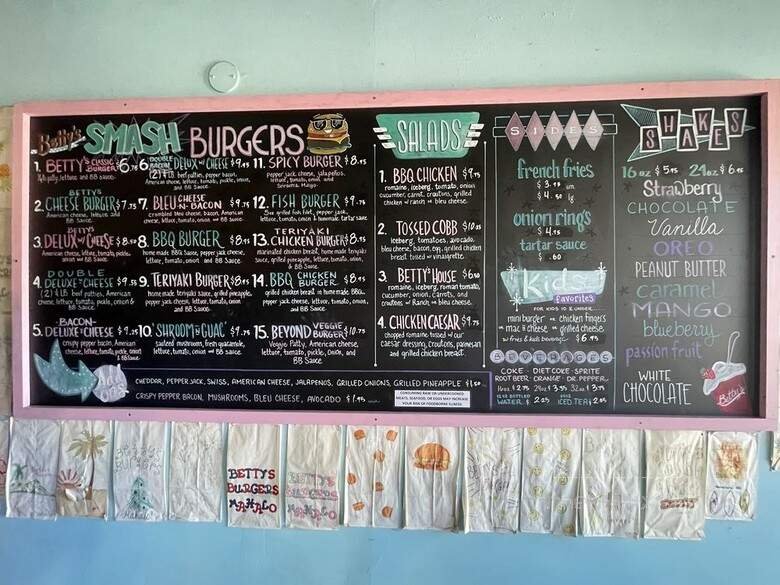 Betty's SMASH BURGERS
1. BETTY'S CLASSIC BURGER $6.75
¼ lb patty, lettuce and BB Sauce.
BETTY'S
2. CHEESE BURGER $7.75
American cheese, lettuce and
BB Sauce.
3. BETTY'S DELUX w/ CHEESE $8.95
American cheese, lettuce, tomato, pickle
onion and BB Sauce
DOUBLE
4. DELUXE w/ CHEESE $9.50
(2) ¼ LB beef patties, American
cheese, lettuce, tomato, pickle, onion &
BB Sauce
BACON
5. DELUXE w/ CHEESE $9.25
crispy pepper bacon, American
cheese, lettuce, tomato, pickle, onion &
BB Sauce
6. DOUBLE BACON DELUX w/ CHEESE
(2) ¼ LB beef patties, pepper bacon,
American cheese, lettuce, tomato, pickle, onion,
and BB Sauce.
7. BLEU CHEESE N-BACON $9.75
crumbled bleu cheese, bacon, American
cheese, lettuce, tomato, onion &
BB Sauce
8. BBQ BURGER $8.95
home made BBQ Sauce, pepper jack cheese,
lettuce, tomato, onion and
BB Sauce.
9. TERIYAKI BURGER $8.95
home made teriyaki sauce, grilled pineapple,
pepper jack cheese, lettuce, tomato, onion
and BB Sauce
10. SHROOM N GUAC $9.75
sauteed mushroom, fresh guacamole,
lettuce, tomato, onion and BB Sauce
11. SPICY BURGER $8.95
pepper jack cheese, jalapeños,
lettuce, tomato, onion, and
Sriracha Mayo.
12. FISH BURGER
lettuce, tomato, onion & homemade tartar sauce
TERIYAKI
13. CHICKEN BURGER $8.95
marinated chicken breast, home made teriyaki
sauce, grilled pineapple, lettuce, tomato, onion
& BB Sauce
14. BBQ CHICKEN BURGER $8.95
grilled chicken breast, home made BBQ,
pepper jack cheese, lettuce, tomato, onion, and
BB Sauce
15. BEYOND VEGGIE BURGER $10.75
Veggie Patty, American cheese,
lettuce, tomato, pickle, onion, and
BB Sauce
Add
CHEDDAR, PEPPER JACK, SWISS, AMERICAN CHEESE, JALAPENOS, GRILLED ONIONS, GRILLED PINEAPPLE $1.50
CRISPY PEPPER BACON, MUSHROOMS, BLEU CHEESE, AVOCADO $1.95
CONSUMING RAW OR UNDERCOOKED
MEATS, SEAFOOD, OR EGGS MAY INCREASE
YOUR RISK OF FOODBORNE ILLNESS
SALADS
1. BBQ CHICKEN $9.75
romaine, iceberg, tomato, onion
cucumber, carrot, croutons, grilled
chicken w/ ranch or bleu cheese.
2. TOSSED COBB $10.25
iceberg, tomatoes, avocado,
bleu cheese, bacon, egg, grilled chicken
breast tossed w/ vinaigrette.
3. BETTY'S HOUSE $6.50
romaine, iceberg, roman tomato,
cucumber, onion, carrots, and
croutons w/ Ranch or Bleu cheese.
4. CHICKEN CAESAR $9.75
chopped romaine tossed w/ our
caesar dressing, croutons, parmesan
and grilled chicken breast.
SIDES
french fries
$4.50 lg
onion rings
$4.95
tartar sauce
$.60
Kids
favorites
FOR KIDS 10 & UNDER
mini burger or chicken fingers
or mac & cheese or grilled cheese
w/ fries & kids beverage $6.95
BEVERAGES
COKE · DIET COKE · SPRITE
ROOT BEER · ORANGE · DR. PEPPER
16oz $2.75 24oz $3.35 32oz $3.75
BOTTLED WATER $2.25 ICED TEA $2.95
SHAKES
16 oz $5.95 24oz $6.95
Strawberry
CHOCOLATE
Vanilla
OREO
PEANUT BUTTER
caramel
MANGO
blueberry
passion fruit
WHITE
CHOCOLATE
Betty's
BETTYS
BURGERS
MAHALO
BETTYS
BURGERS
MAHALO